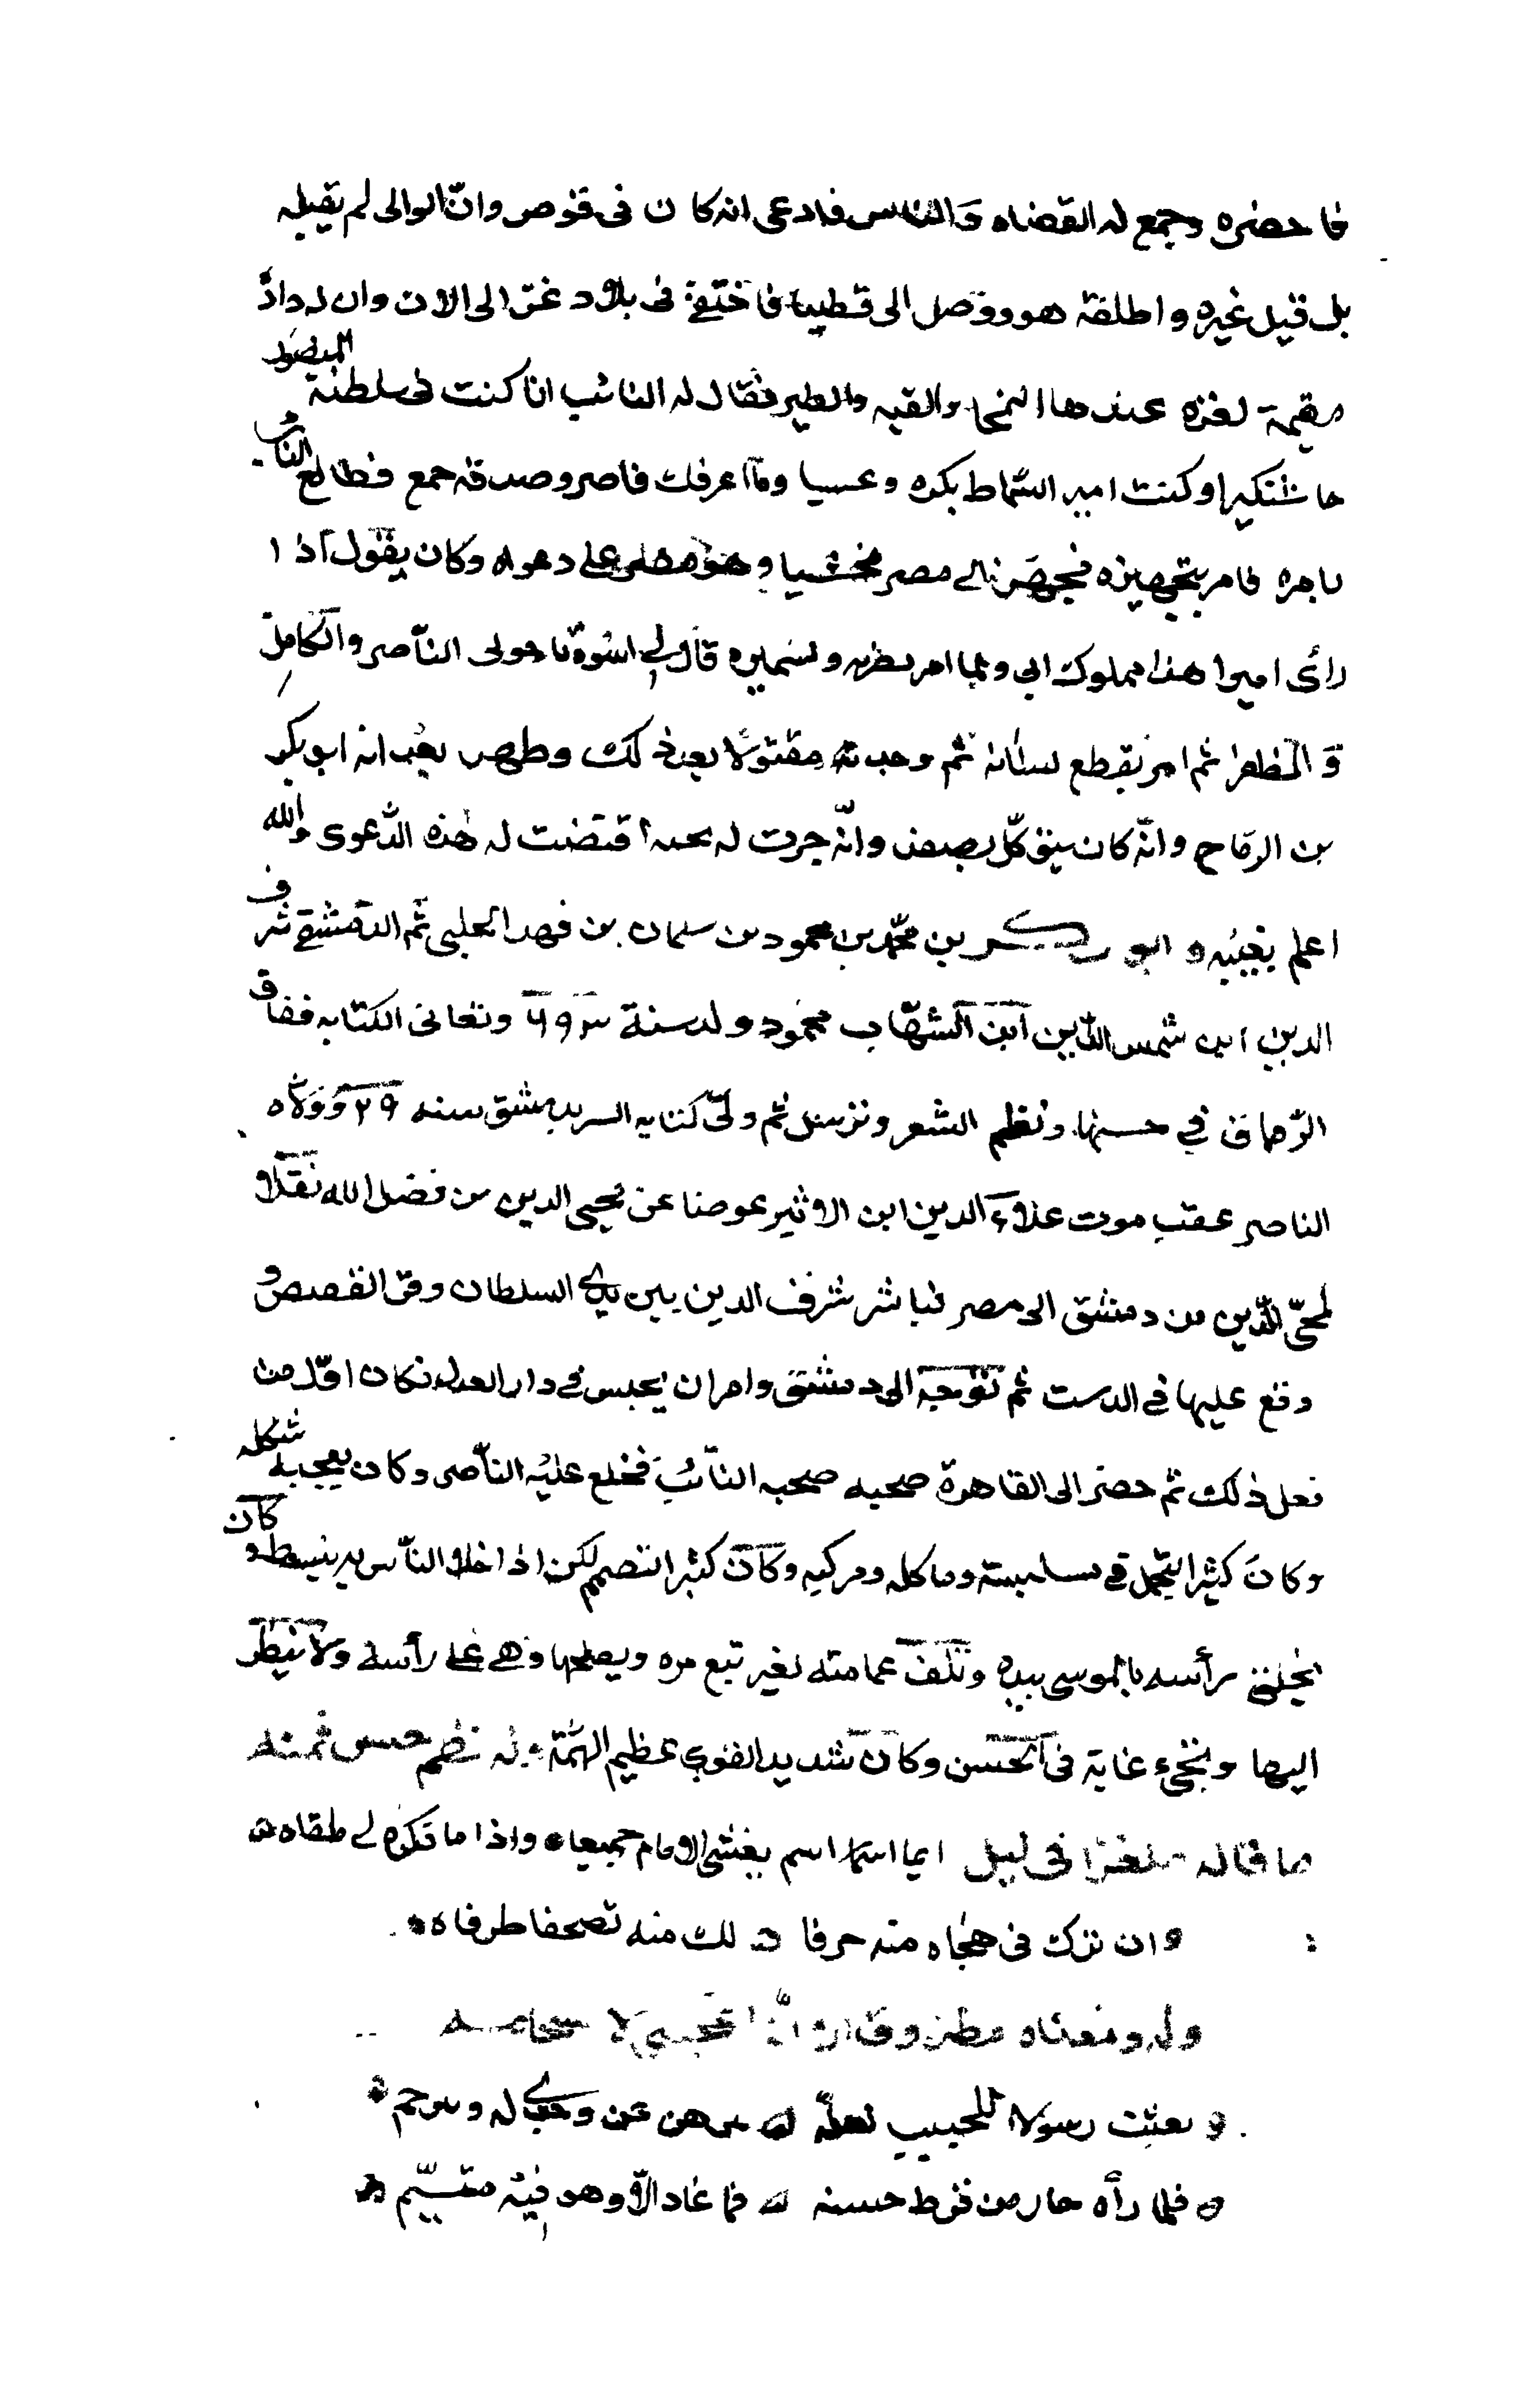 فاحضره وجمع له القضاه والناس فادعى انه كان فى قوص وانّ الوالى لم يقبله
بل قتل غيره واطلقه هو ووصل الى قطيا فاختفى فى بلاد غزة الى الان وان له دادة
مقيمة بغزه عندها النمجا والقبه والطير فقال له النائب انا كنت فى سلطنة المنصور
جاشنكيرا وكنت امير السّماط بكره وعشيا وما اعرفك فاصر وصدقه جمع فطالع النائب
بامره فامر بتجهيزه فجهّز الى مصر وهو مصر على دعواه وكان يقول اذا
رأى اميرا هذا مملوك ابى ولما امر بضربه وتسميره قال لى اسوة باخوتى الناصر والكامل
والمظفر ثم امر بقطع لسانه ثم وجدته مقتولا بعد ذلك وظهر بعد انه ابو بكر
بن الرماح وانّه كان يتوكّل بصفد وانّه جرت له محنة اقتضت له هذه الدّعوى والله
اعلم بغيبه وابو بكر بن محمّد بن محمود بن سلمان بن فهد الحلبى ثم الدمشقى شرف
الدين ابن شمس الدّين ابن الشهاب محمود ولد سنة ٦٩٣ وتعانى الكتابه ففاق
الرصاف فى حسنها ونظم الشعر وترسل ثم ولّى كتابه السر بدمشق سنه ٧٢٩ وولاه
الناصر عقب موت علاء الدين ابن الاثير عوضا عن محيى الدين بن فضل الله نقلا
لمحيّ الدّين من دمشق الى مصر فباشر شرف الدين بين يدي السلطان وقرا القصص و
وقع عليها فى الدست ثم توجه الى دمشق وامر ان يجلس فى دار العدل فكان اوّل من
فعل ذلك ثم حضر الى القاهرة صحبه صحبه النائب فخلع عليه الناصر وكان يعجبه شكله
وكان كثير التجمل فى ملبسه وماكله ومركبه وكان كثير التصمم لكن اذا خلا الناس به ينبسط وكان
يحلق رأسه بالموسى بيده وتلف عمامته لغير تبع مره ويصلحها وهى على رأسه ولا ينظر
اليها وتجىء غاية فى الحسن وكان شديد القوى عظيم الهمّة وله نظم حسن ثمنه
ما قاله ملغزا فى ليل ايما اسم يغشى الانام جميعا واذا ما تكره لى طغاه
وان ترك فى هجاه منه حرفا لك منه تصحفا طرفاه
وله ومعناه مطروق
وبعثت رسولا للحبيب لعلّه يبرهن عن وجدي له ويترجم
فلما رأه حار من فرط حسنه فما عاد الّا وهو فيه متيّم